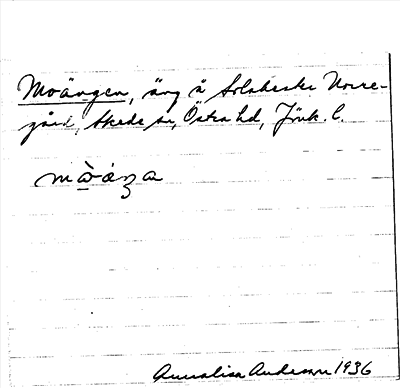 Moängen, äng å Solaberke Norre-
gård, Skede sn, Östra hd, Jönk. l.
mòáŋa
Annalisa Anderson 1936